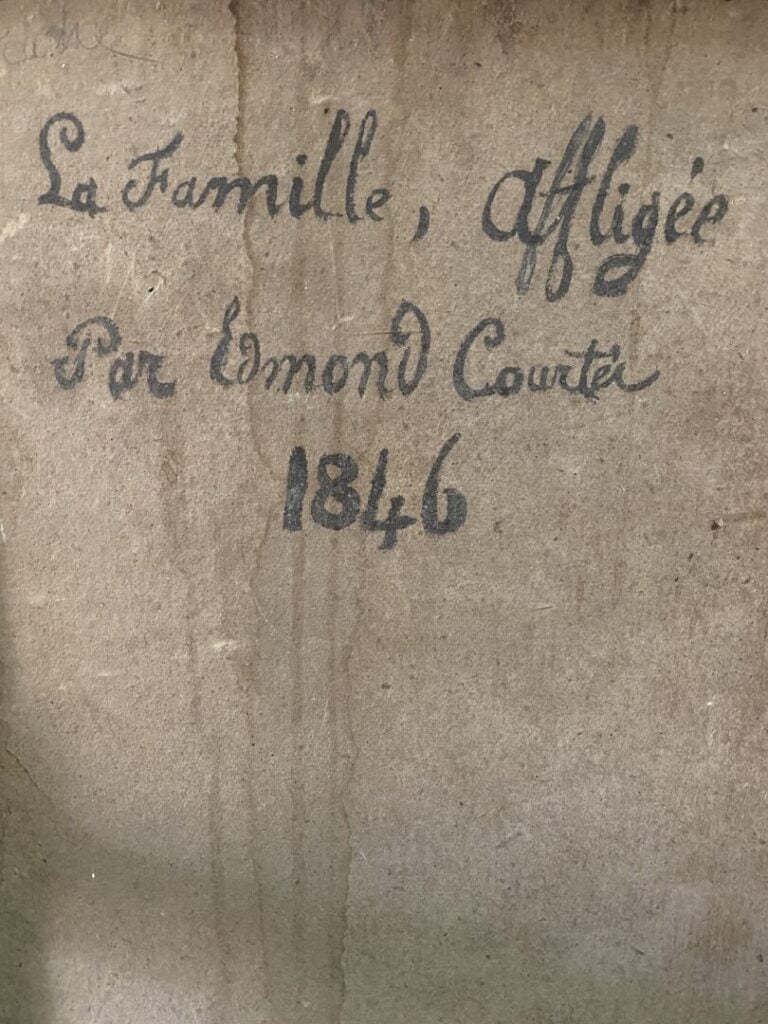 La Famille, affligée
Par Edmond Courtér
1846